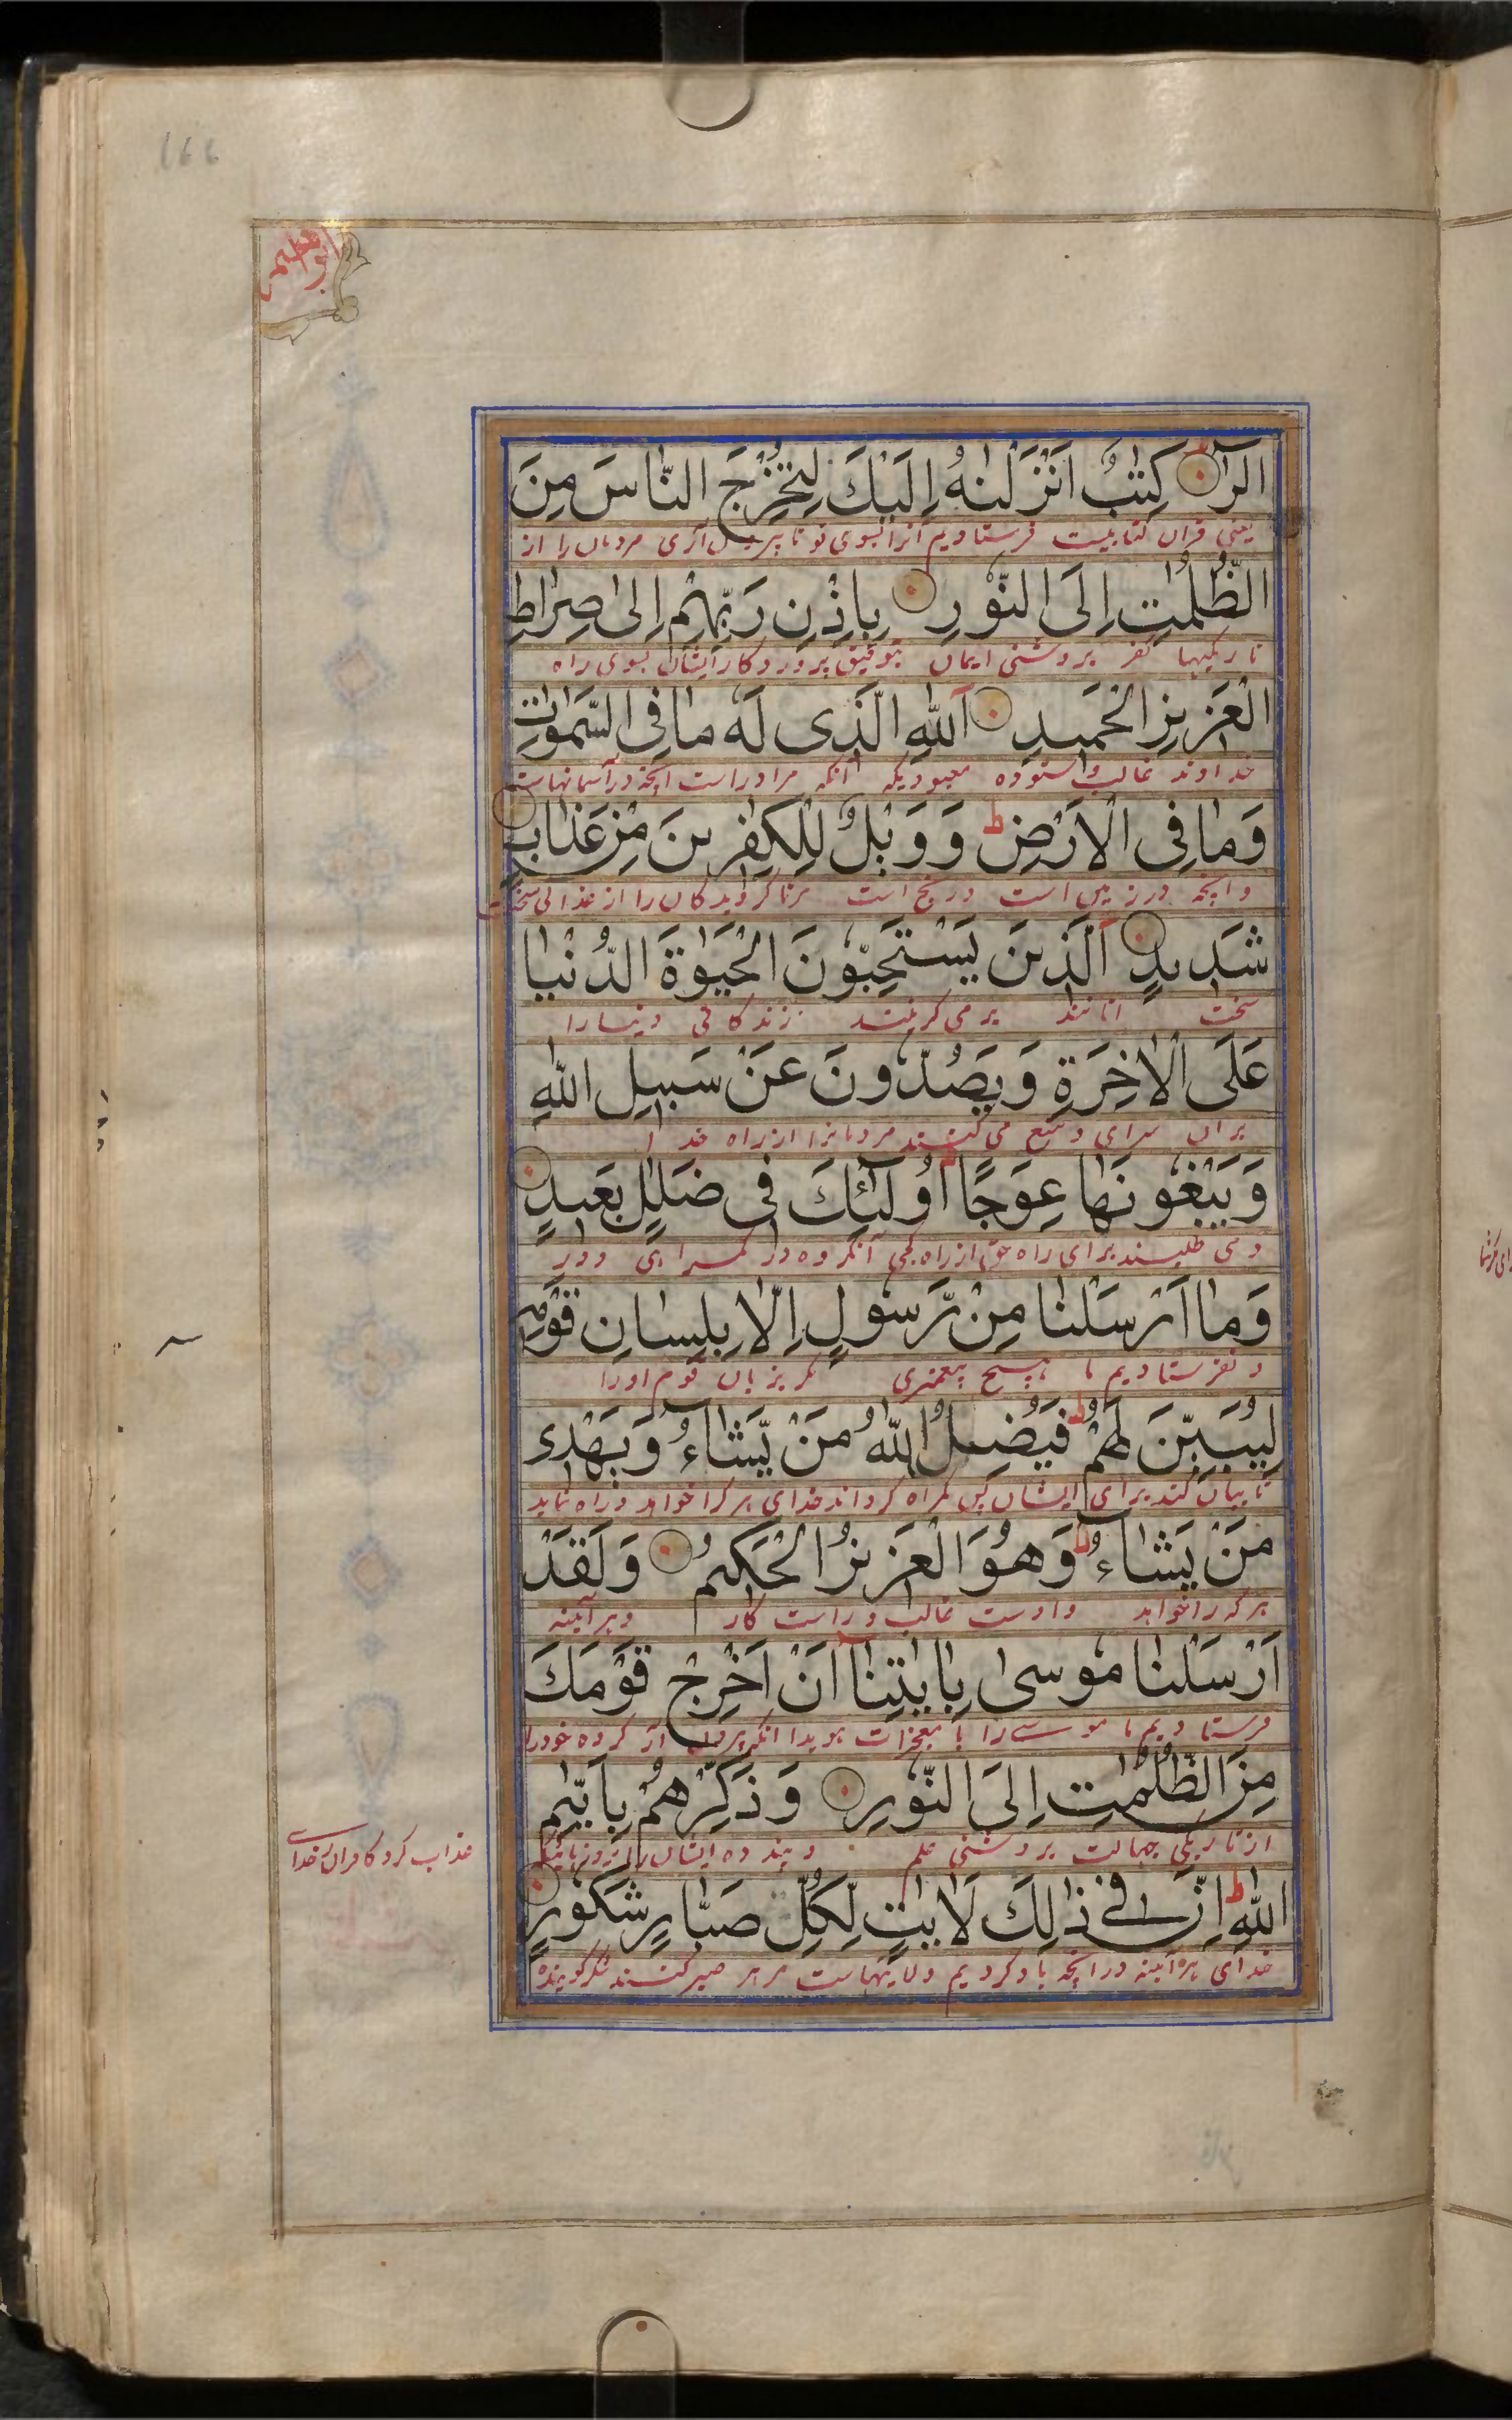 ١٤٤
ابراهیم
الٓرٰ كِتٰبٌ اَنْزَلْنٰهُ اِلَيْكَ لِتُخْرِجَ النَّاسَ مِنَ
یعنی قران کتابیست فرستادیم آنرا بسوی تو تا بیرون آری مردمان را از
الظُّلُمٰتِ اِلَى النُّوْرِ بِاِذْنِ رَبِّهِمْ اِلٰى صِرَاطِ
تاریکیها کفر بروشنی ایمان بتوفیق پروردکار ایشان بسوی راه
الْعَزِيْزِ الْحَمِيدِ اَللّٰهِ الَّذِى لَهٗ مَا فِى السَّمٰوٰتِ
خداوند غالب و ستوده معبودیکه آنکه مر اوراست انچه در آسمانهاست
وَمَا فِى الْاَرْضِ ط وَوَيْلٌ لِلْكٰفِرِينَ مِنْ عَذَابٍ
وانچه در زمین است و رنج است مر ناکرویدکان را از عذابی سخت
شَدِيدٍ اَلَّذِينَ يَسْتَحِبُّوْنَ الْحَيٰوةَ الدُّنْيَا
سخت انانند بر می کزینند زندکانی دنیا را
عَلَى الْاٰخِرَةِ وَيَصُدُّوْنَ عَنْ سَبِيلِ اللّٰهِ
بران سرای و منع می کنند مردمانرا از راه خدا
وَيَبْغُوْنَهَا عِوَجًا اُولٰٓئِكَ فِى ضَلٰلٍ بَعِيدٍ
و می طلبند برای راه حق از راه کجی آنکروه در کمراهی دور
وَمَا اَرْسَلْنَا مِنْ رَّسُوْلٍ اِلَّا بِلِسَانِ قَوْمِهِ
و نفرستادیم ما هیچ پیغمبری مکر بزبان قوم او را
لِيُبَيِّنَ لَهُمْ ط فَيُضِلُّ اللّٰهُ مَنْ يَّشَاءُ وَيَهْدِى
تا بیان کند برای ایشان پس کمراه کرداند خدای هر کرا خواهد و راه نماید
مَنْ يَشَاءُ ط وَهُوَ الْعَزِيزُ الْحَكِيمُ وَلَقَدْ
هر که را خواهد و اوست غالب و راست کار و هر آئینه
اَرْسَلْنَا مُوْسٰى بِاٰيٰتِنَا اَنْ اَخْرِجْ قَوْمَكَ
فرستادیم ما موسی را با معجزات هویدا انکه بیرون آر کروه خود را
مِنَ الظُّلُمٰتِ اِلَى النُّوْرِ وَذَكِّرْهُمْ بِاَيّٰىمِ
از تاریکی جهالت بروشنی علم و پند ده ایشان را بروزهای
عذاب کرد کافران خدا
اللّٰهِ ط اِنَّ فِى ذٰلِكَ لَاٰيٰتٍ لِّكُلِّ صَبَّارٍ شَكُوْرٍ
خدای هر آئینه در انچه یاد کردیم دلایلهاست مر هر صبر کننده شکر کوینده